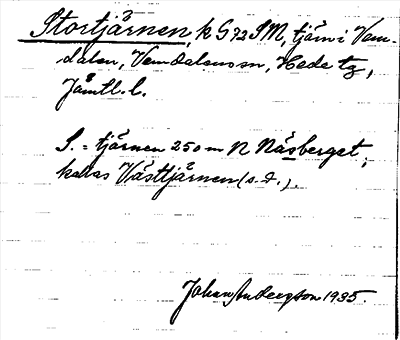 Stortjärnen, k G 72 SM, tjärn i Vem-
dalen, Vemdalens sn, Hede tg,
Jämtl. l.
S. = tjärnen 250 m N Näsberget,
kallas Västtjärnen (s. d.).
Johan Andersson 1935.